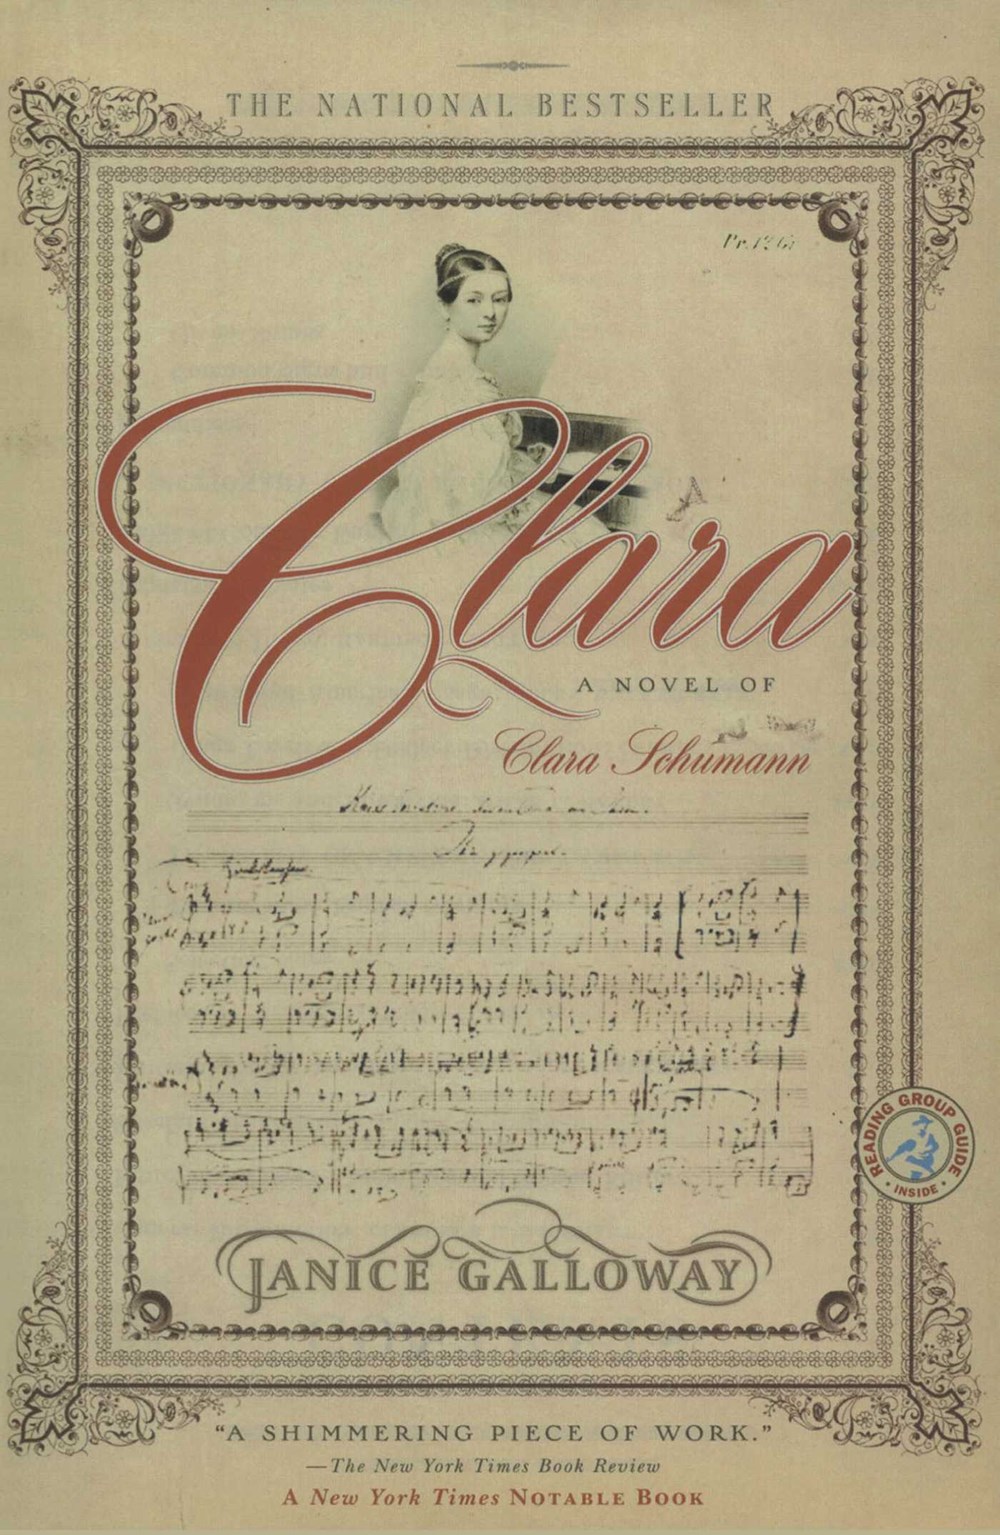 THE NATIONAL BESTSELLER
Clara
A NOVEL OF
Clara Schumann
READING GROUP GUIDE
• INSIDE •
JANICE GALLOWAY
“A SHIMMERING PIECE OF WORK.”
—The New York Times Book Review
A New York Times NOTABLE BOOK